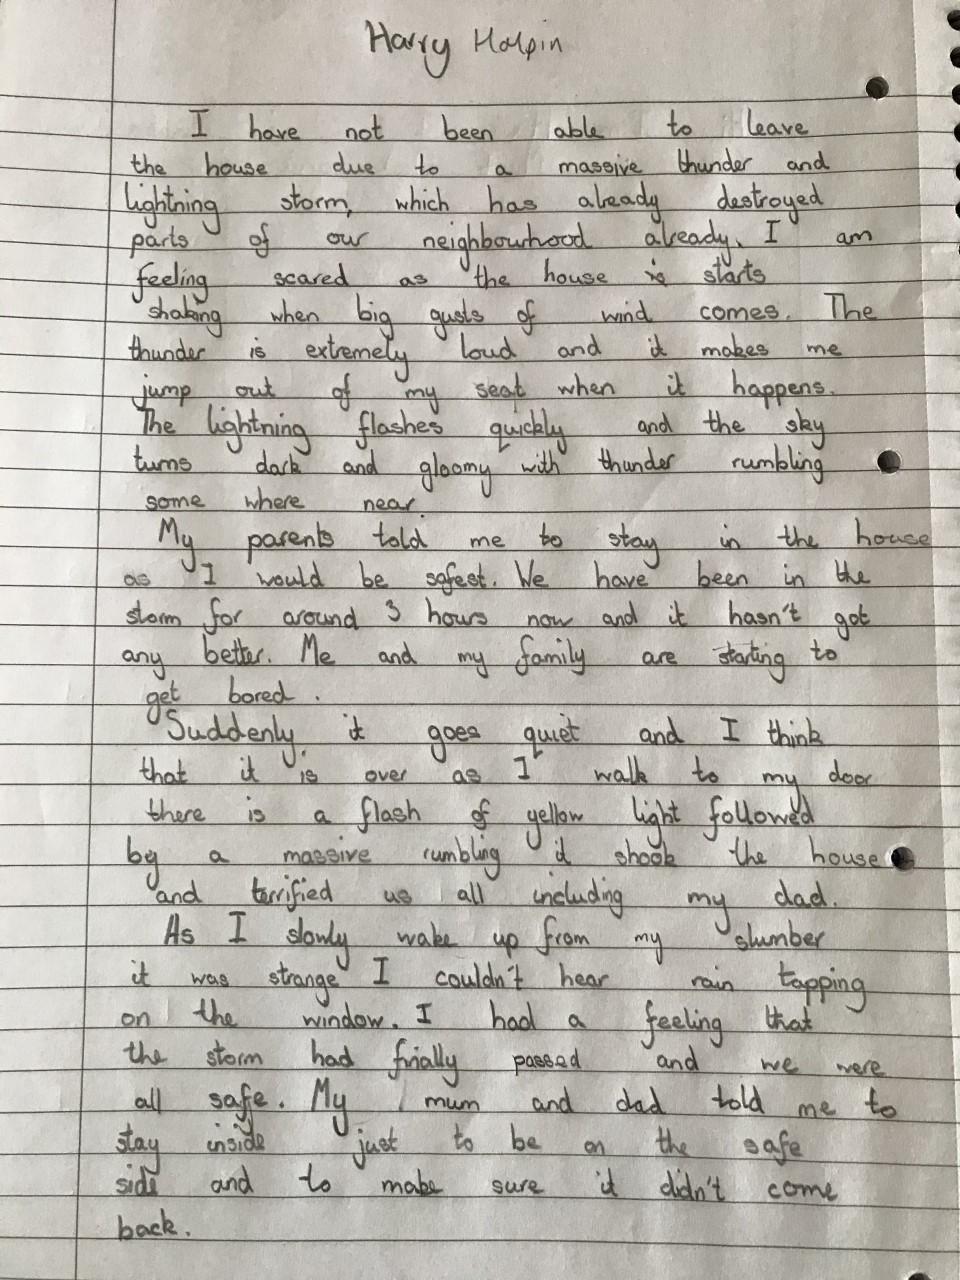 Harry Halpin
I have not been able to leave
the house due to a massive thunder and
lightning storm, which has already destroyed
parts of our neighbourhood already. I am
feeling scared as the house is starts
shaking when big gusts of wind comes. The
thunder is extremely loud and it makes me
jump out of my seat when it happens.
The lightning flashes quickly and the sky
turns dark and gloomy with thunder rumbling
some where near.
My parents told me to stay in the house
as I would be safest. We have been in the
storm for around 3 hours now and it hasn't got
any better. Me and my family are starting to
get bored.
Suddenly it goes quiet and I think
that it is over as I walk to my door
there is a flash of yellow light followed
by a massive rumbling it shook the house
and terrified us all including my dad.
As I slowly wake up from my slumber
it was strange I couldn't hear rain tapping
on the window. I had a feeling that
the storm had finally passed and we were
all safe. My mum and dad told me to
stay inside just to be on the safe
side and to make sure it didn't come
back.